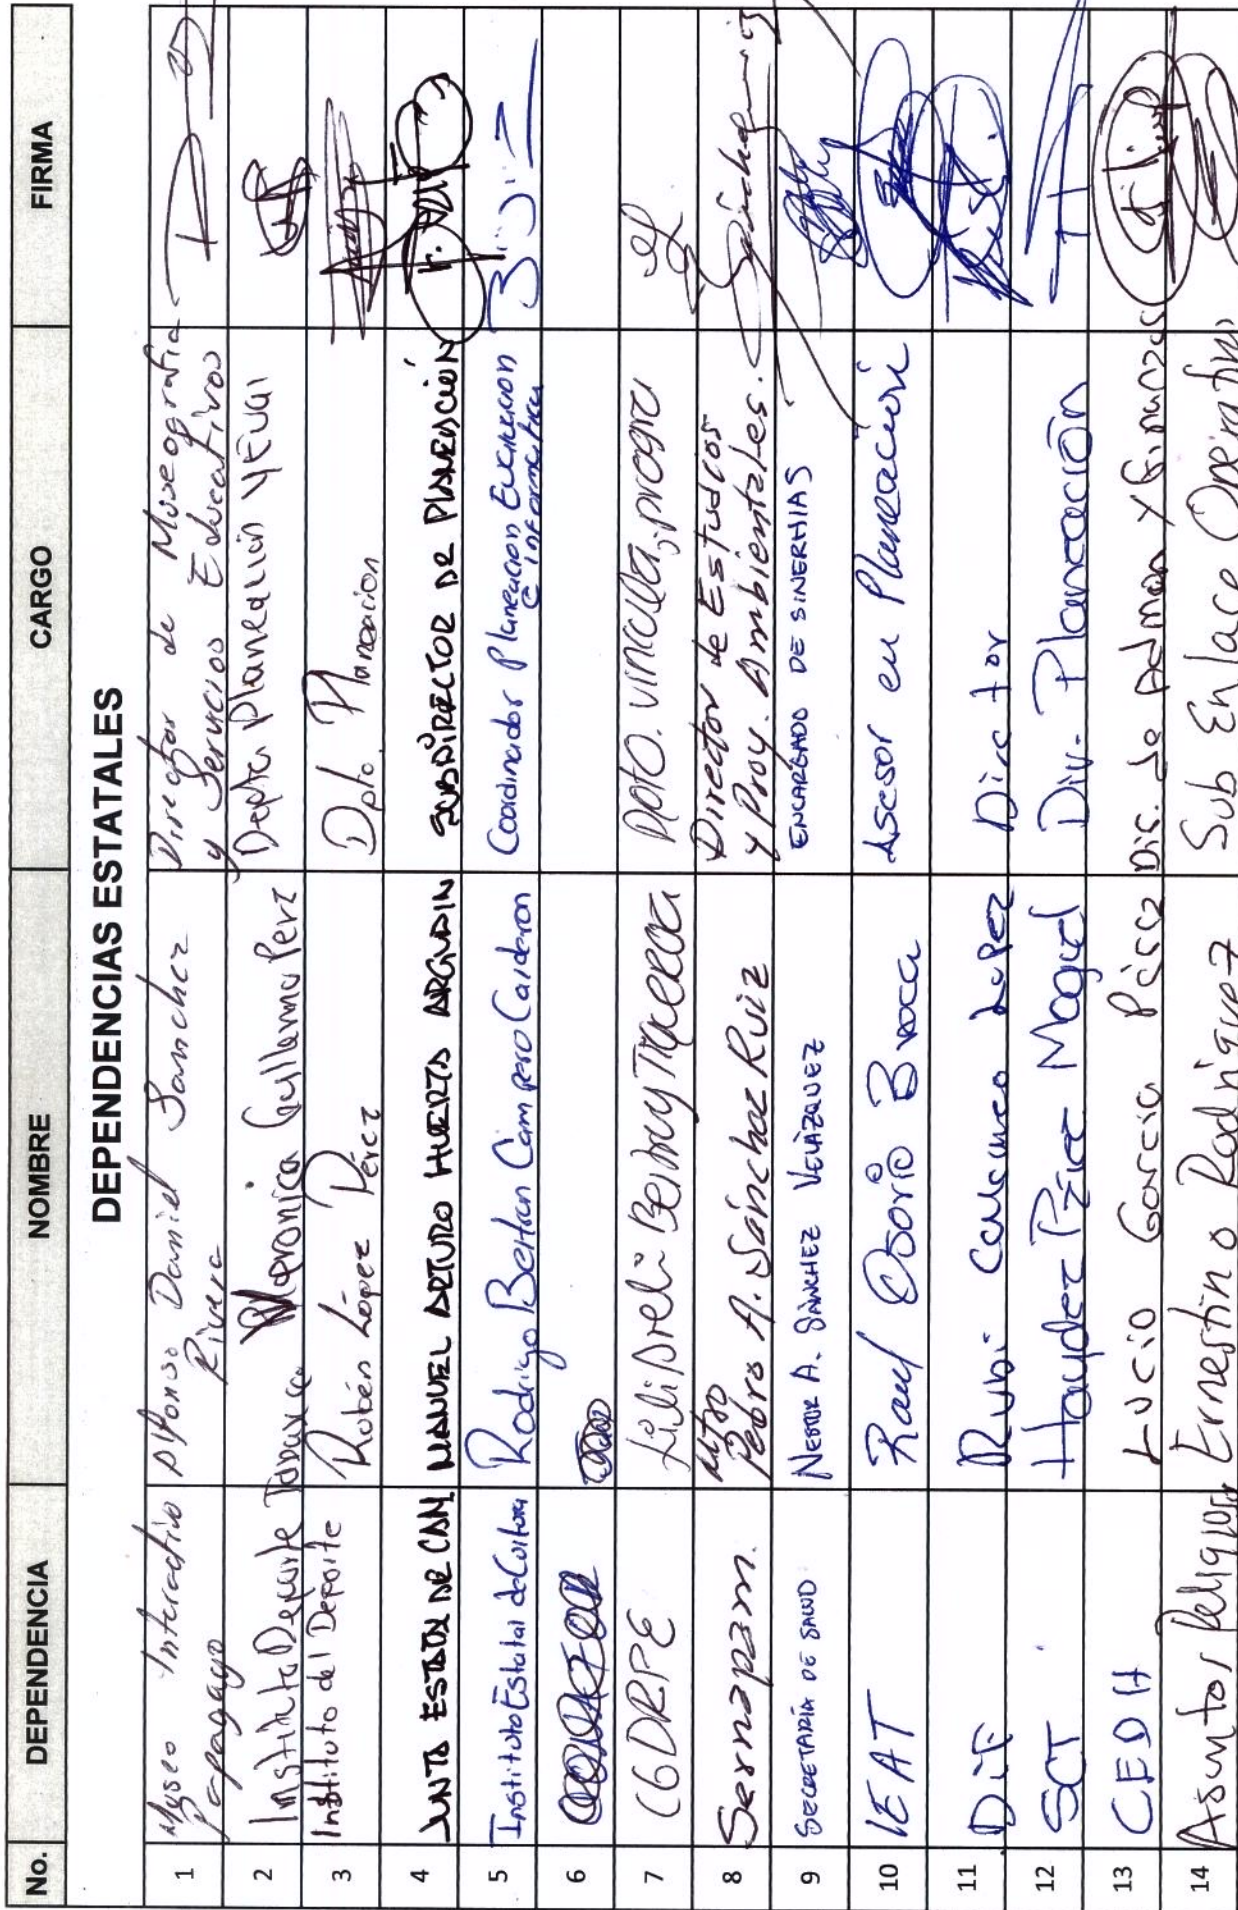 No. DEPENDENCIA NOMBRE CARGO FIRMA
DEPENDENCIAS ESTATALES
1 Museo Interactivo Papagayo Alfonso Daniel Sanchez Rivera Director de Museografia y Servicios Educativos
2 Instituto Deporte Tabasco Veronica Gullermo Perez Depto Planeación
3 Instituto del Deporte Rubén López Pérez Dpto. Planeacion
4 JUNTA ESTATAL DE CAM MANUEL ARTURO HUERTA ARGUDIN SUBDIRECTOR DE PLANEACIÓN
5 Instituto Estatal de Cultura Rodrigo Beltran Campero Calderon Coordinador Planeacion Evaluacion e informatica
6
7 CGDRPE Berny
8 Sernapam. Mtro Pedro A. Sánchez Ruiz Director de Estudios y Proy. Ambientales. Sánchez
9 SECRETARÍA DE SALUD NESTOR A. SÁNCHEZ VELÁZQUEZ ENCARGADO DE SINERHIAS
10 IEAT Raul Osorio Asesor en Planeación
11 DIF Rubi Lopez Director
12 SCT Haydee Pérez Magul Div. Planeación
13 CEDH Lucio Garcia Pérez Dir. de Admon y finanzas
14 Asuntos Religiosos Ernestino Rodriguez Sub Enlace Operativo